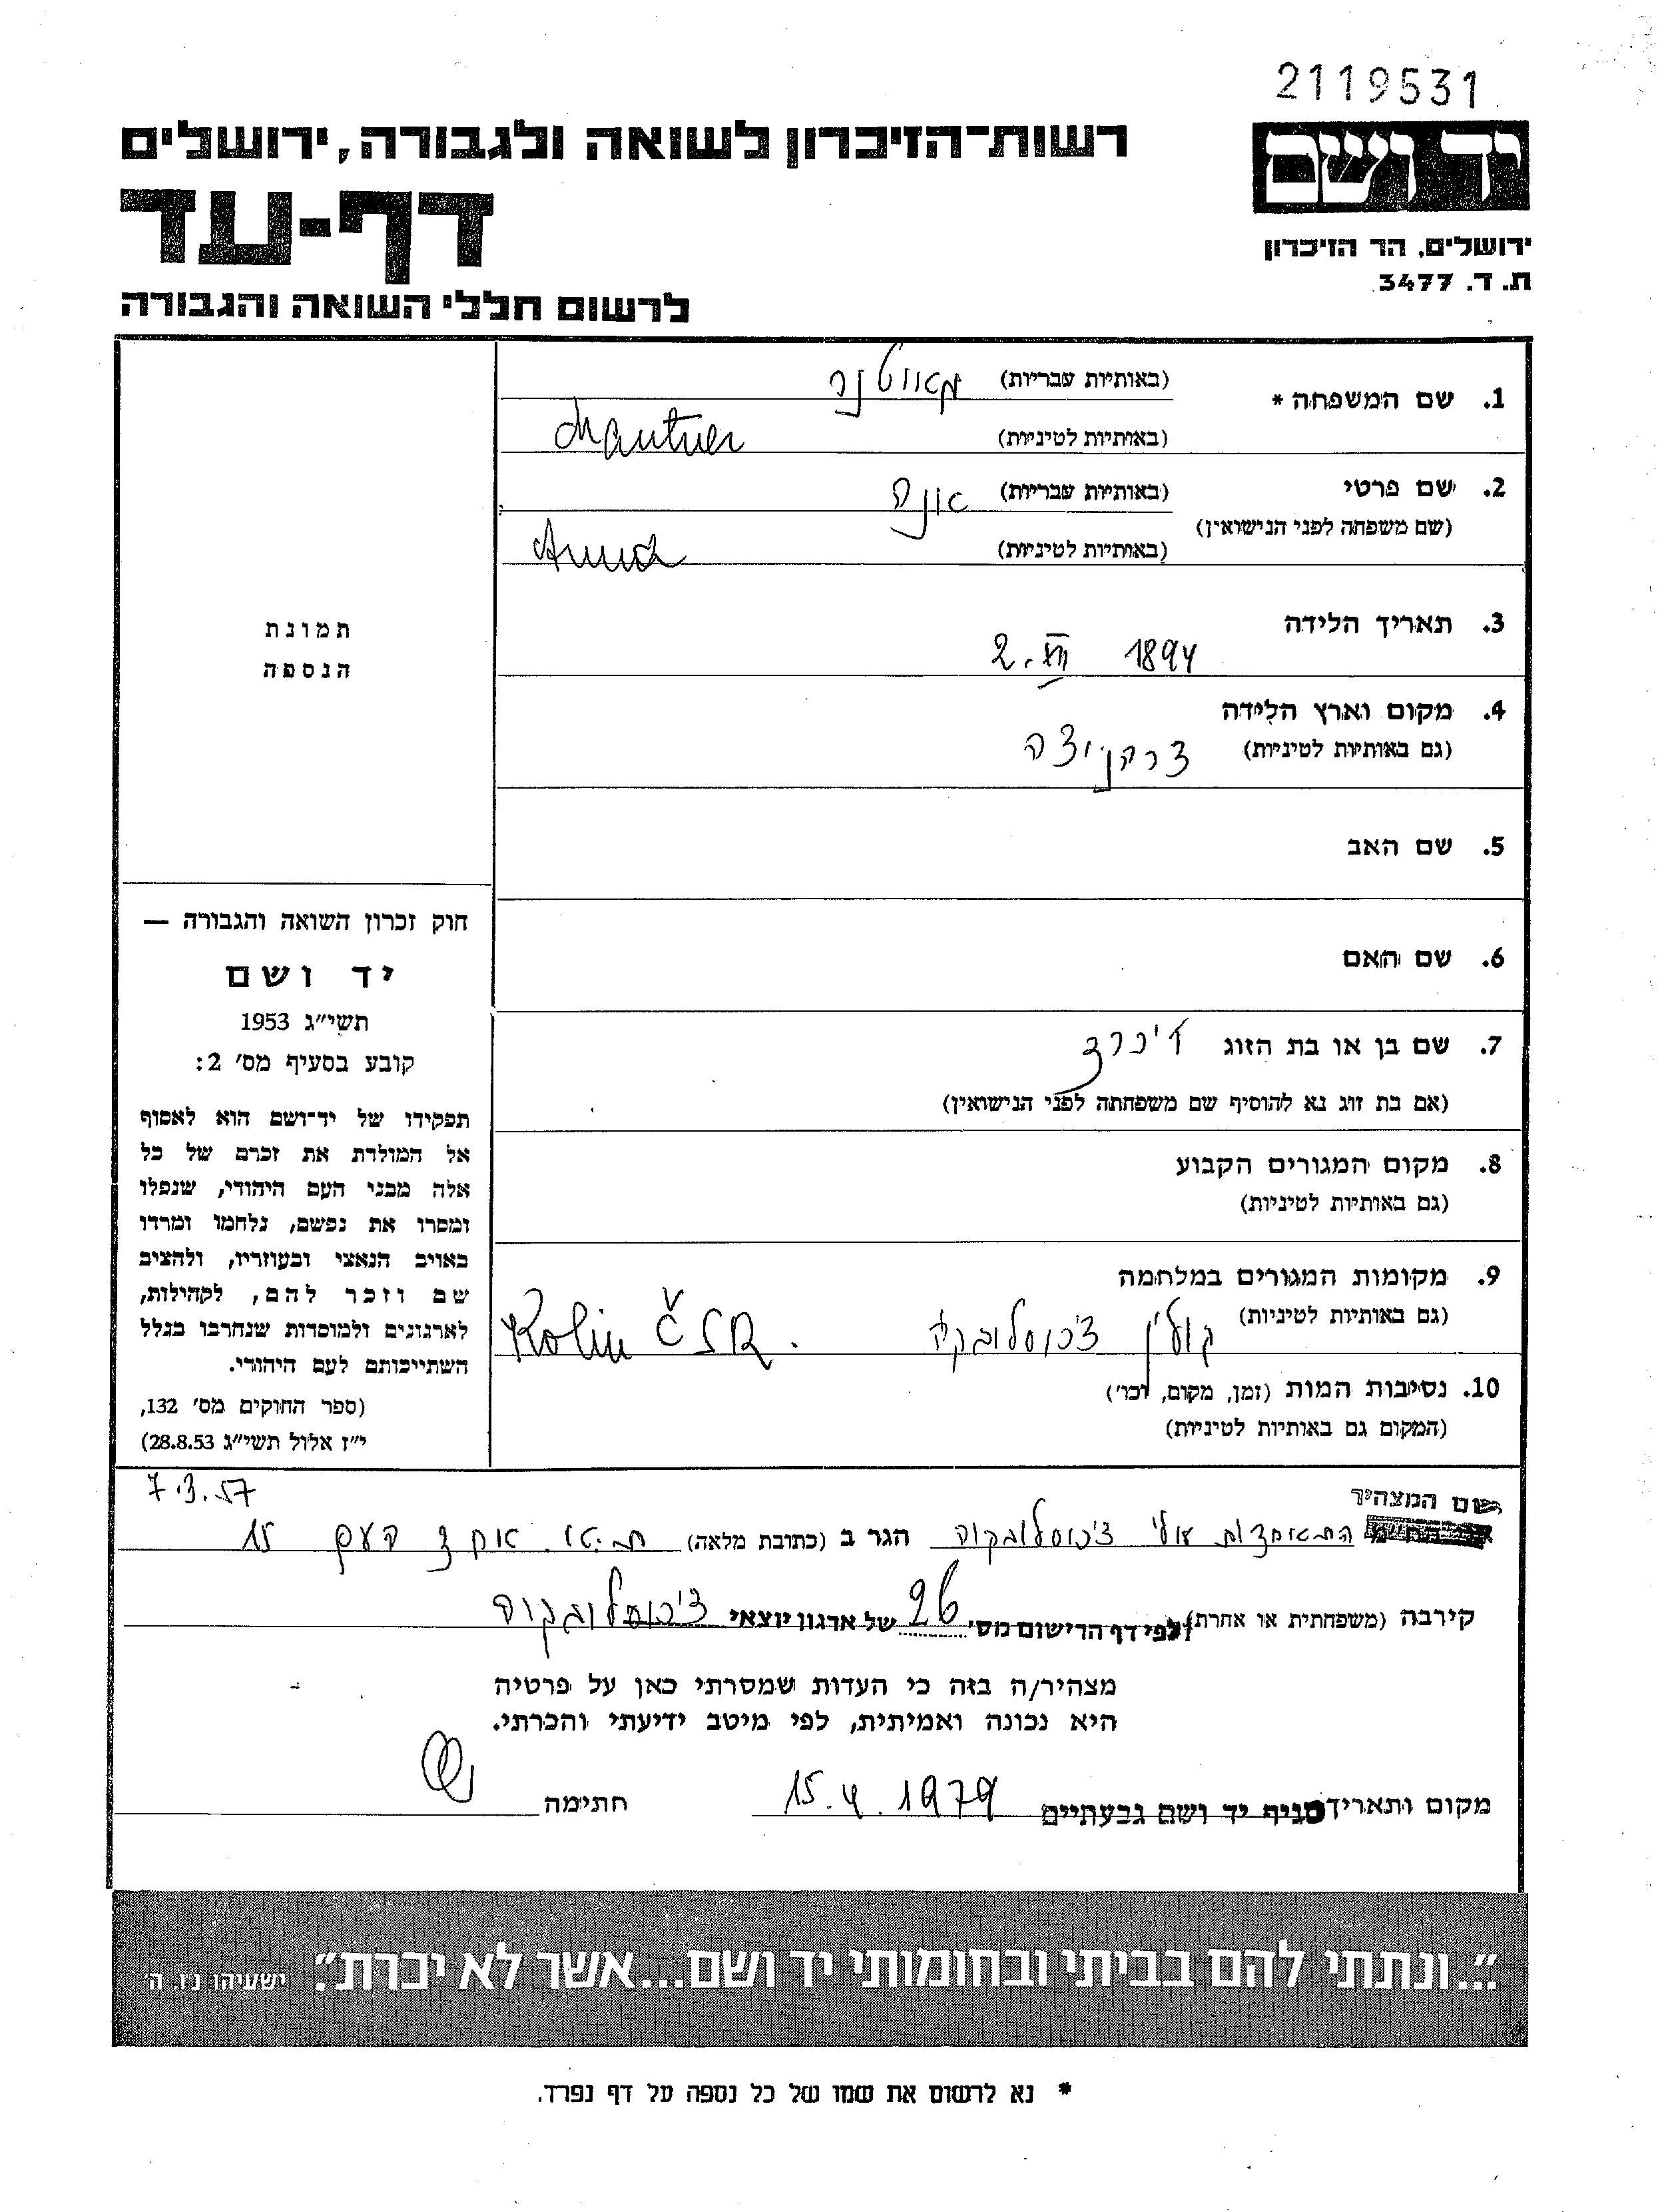 2119531
רשות-הזיכרון לשואה ולגבורה, ירושלים
יד ושם
דף-עד
ירושלים, הר הזיכרון
ת. ד. 3477
לרשום חללי השואה והגבורה
1. שם המשפחה * (באותיות עבריות) מאוטנר
(באותיות לטיניות) Mautner
2. שם פרטי (באותיות עבריות) אנה
(שם משפחה לפני הנישואין)
(באותיות לטיניות) Anna
3. תאריך הלידה
2. XII 1894
4. מקום וארץ הלידה
(גם באותיות לטיניות)
5. שם האב
6. שם האם
7. שם בן או בת הזוג
(אם בת זוג נא להוסיף שם משפחתה לפני הנישואין)
8. מקום המגורים הקבוע
(גם באותיות לטיניות)
9. מקומות המגורים במלחמה
(גם באותיות לטיניות) קולין צ'כוסלובקיה Kolin ČSR.
10. נסיבות המות (זמן, מקום, וכו')
(המקום גם באותיות לטיניות)
תמונת
הנספה
חוק זכרון השואה והגבורה —
יד ושם
תשי״ג 1953
קובע בסעיף מס' 2:
תפקידו של יד־ושם הוא לאסוף
אל המולדת את זכרם של כל
אלה מבני העם היהודי, שנפלו
ומסרו את נפשם, נלחמו ומרדו
באויב הנאצי ובעוזריו, ולהציב
שם וזכר להם, לקהילות,
לארגונים ולמוסדות שנחרבו בגלל
השתייכותם לעם היהודי.
(ספר החוקים מס' 132,
י״ז אלול תשי״ג 28.8.53)
7.3.57
שם המצהיר
התאחדות עולי צ'כוסלובקיה הגר ב (כתובת מלאה) ת.א. אחד העם 15
קירבה (משפחתית או אחרת) לפי דף הרישום מס' 26 של ארגון יוצאי צ'כוסלובקיה
מצהיר/ה בזה כי העדות שמסרתי כאן על פרטיה
היא נכונה ואמיתית, לפי מיטב ידיעתי והכרתי.
מקום ותאריך סניף יד ושם גבעתיים 15.4.1979 חתימה
"...ונתתי להם בביתי ובחומותי יד ושם...אשר לא יכרת". ישעיהו נו, ה'
* נא לרשום את שמו של כל נספה על דף נפרד.